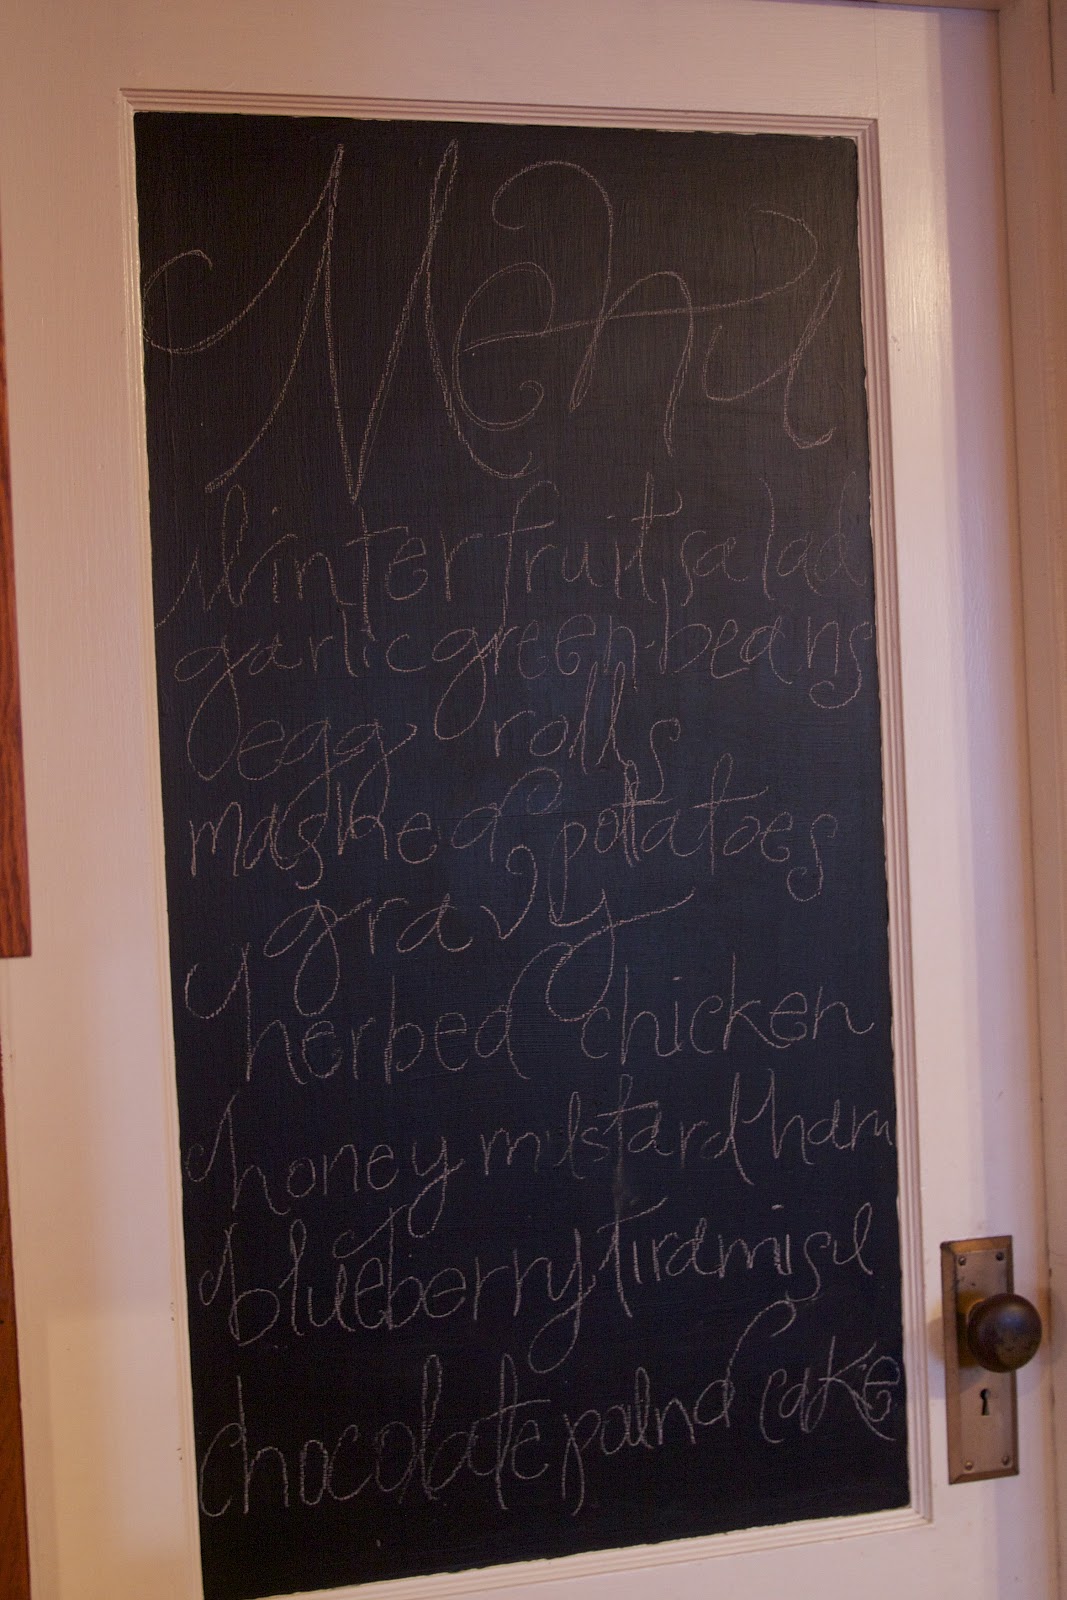 Menu
Winter fruit salad
garlic green beans
egg rolls
mashed potatoes
gravy
herbed chicken
honey mustard ham
blueberry tiramisu
chocolate pound cake